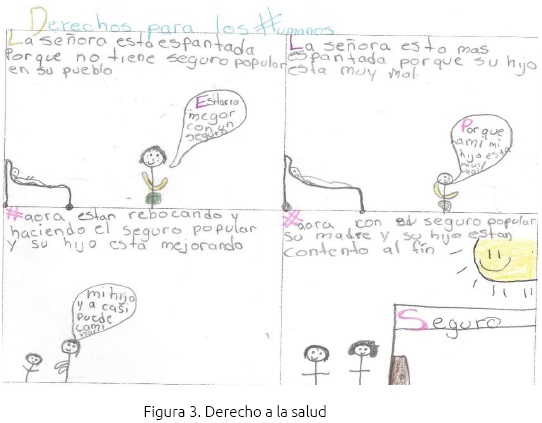 Derechos para los Humanos
La señora esta espantada
Porque no tiene seguro popular
en su pueblo
Estaria
megor
con un
seguro
La señora esta mas
espantada porque su hijo
esta muy mal
Porque
ami mi
hijo esta
muy
mal
Haora estan rebocando y
haciendo el seguro popular
y su hijo está mejorando
mi hijo
y a casi
Puede
cami
nar
Haora con el seguro popular
su madre y su hijo estan
contento al fin
Seguro
Figura 3. Derecho a la salud